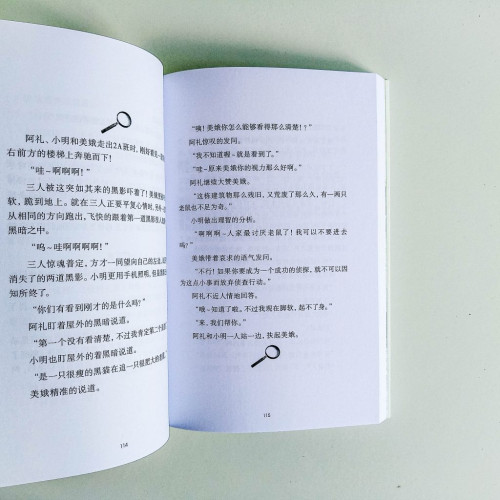 阿礼、小明和美娥走出2A班时，刚好看见一
右前方的楼梯上奔驰而下！
“哇~啊啊啊！”
三人被这突如其来的黑影吓着了！美娥
软，跪到地上。就在三人正要平复心情时，另外
从相同的方向跑出，飞快的跟着第一道黑影
黑暗之中。
“呜~哇啊啊啊啊！”
三人惊魂普定，方才一同望向自己的左
消失了的两道黑影。小明更用手机照明，但
知所终了。
“你们有看到刚才的是什么吗？”
阿礼盯着屋外的黑暗说道。
“第一个没有看清楚，不过我肯定第二个
小明也盯屋外的着黑暗说道。
“是一只很瘦的黑猫在追一只很肥大的
美娥精准的说道。
“咦！美娥你怎么能够看得那么清楚！？”
阿礼惊叹的发问。
“我不知道喔~就是看到了。”
“哇~原来美娥你的视力那么好啊。”
阿礼继续大赞美娥。
“这栋建筑物那么残旧，又荒废了那么久，有一两只
老鼠也不足为奇。”
小明做出理智的分析。
“啊啊啊~人家最讨厌老鼠了！我可以不要进去
吗？”
美娥带着哀求的语气发问。
“不行！如果你要成为一个成功的侦探，就不可以因
为这点小事而放弃侦查行动。”
阿礼不近人情地回答。
“哦~知道了啦。不过我现在脚软，起不了身。”
“来，我们帮你。”
阿礼和小明一人站一边，扶起美娥。
115